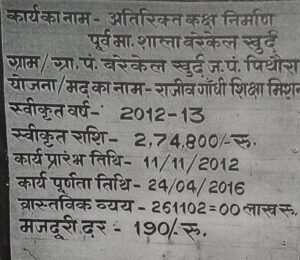 कार्य का नाम- अतिरिक्त कक्ष निर्माण
पूर्व मा. शाला बरेकेल खुर्द
ग्राम/ग्रा.पं. बरेकेल खुर्द ज.पं. पिथौरा
योजना/मद का नाम- राजीव गाँधी शिक्षा मिशन
स्वीकृत वर्ष- 2012-13
स्वीकृत राशि- 2,74,800/-रु.
कार्य प्रारंभ तिथि- 11/11/2012
कार्य पूर्णता तिथि- 24/04/2016
वास्तविक व्यय- 261102=00 लाख रू.
मजदूरी दर - 190/-रु.